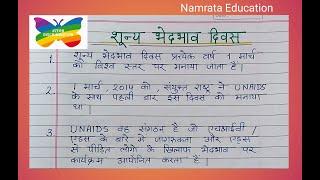 Namrata Education
शून्य भेदभाव दिवस
1. शून्य भेदभाव दिवस प्रत्येक वर्ष 1 मार्च
को विश्व स्तर पर मनाया जाता है।
2. 1 मार्च, 2014 को, संयुक्त राष्ट्र ने UNAIDS
के साथ पहली बार इस दिवस को मनाया
था।
3. UNAIDS वह संगठन है जो एचआईवी /
एड्स के बारे में जागरूकता और एड्स
से पीड़ित लोगों के खिलाफ भेदभाव पर
कार्यक्रम आयोजित करता है।